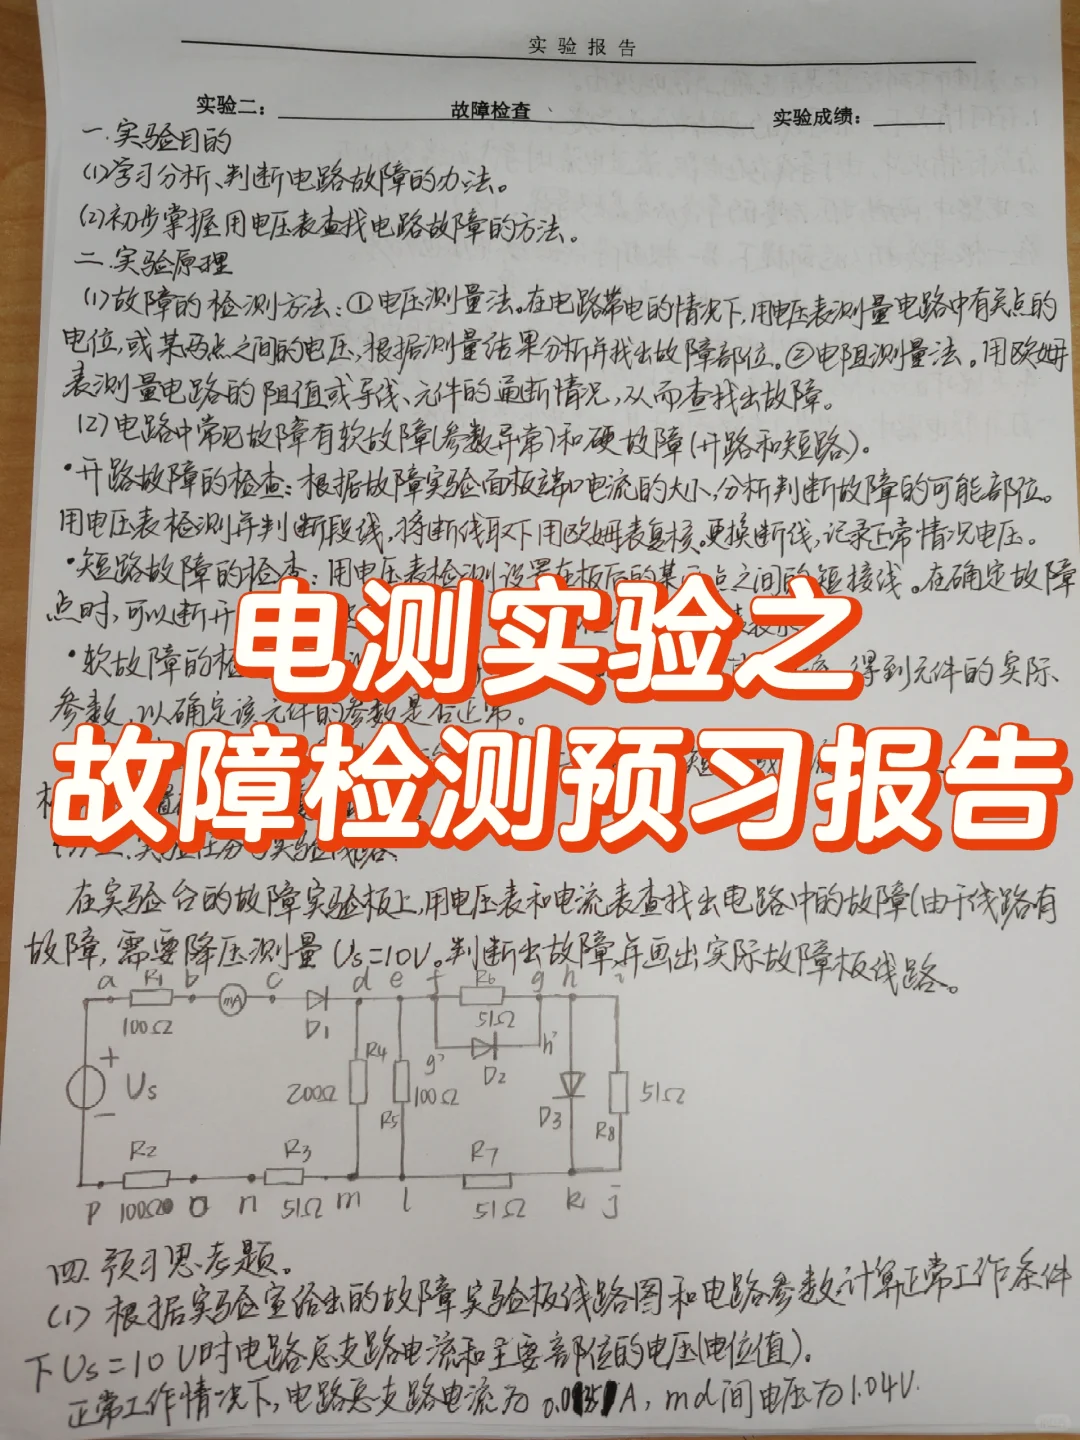 实验报告
实验二: 故障检查 实验成绩:
一.实验目的
(1)学习分析、判断电路故障的办法。
(2)初步掌握用电压表查找电路故障的方法。
二.实验原理
(1)故障的检测方法:①电压测量法。在电路带电的情况下,用电压表测量电路中有关点的
电位,或某两点之间的电压,根据测量结果分析并找出故障部位。②电阻测量法。用欧姆
表测量电路的阻值或导线、元件的通断情况,从而查找出故障。
(2)电路中常见故障有软故障(参数异常)和硬故障(开路和短路)。
•开路故障的检查:根据故障实验面板端口电流的大小,分析判断故障的可能部位。
用电压表检测并判断段线,将断线取下用欧姆表复核。更换断线,记录正常情况电压。
•短路故障的检查:用电压表检测设置在板后的某两点之间的短接线。在确定故障
点时,可以断开
•软故障的检 得到元件的实际
参数,以确定该元件的参数是否正常。
电测实验之
故障检测预习报告
三.实验任务与实验线路
在实验台的故障实验板上,用电压表和电流表查找出电路中的故障(由于线路有
故障,需要降压测量Us=10V。判断出故障,并画出实际故障板线路。
a R1 b c d e f R6 g h i
mA
100Ω D1 51Ω
+ R4 g' h'
Us 200Ω 100Ω D2 51Ω
- R5 D3 R8
R2 R3 R7
p 100Ω o n 51Ω m l 51Ω k j
四.预习思考题。
(1)根据实验室给出的故障实验板线路图和电路参数计算正常工作条件
下Us=10V时电路总支路电流和主要部位的电压(电位值)。
正常工作情况下,电路总支路电流为 A, md间电压为1.04V.